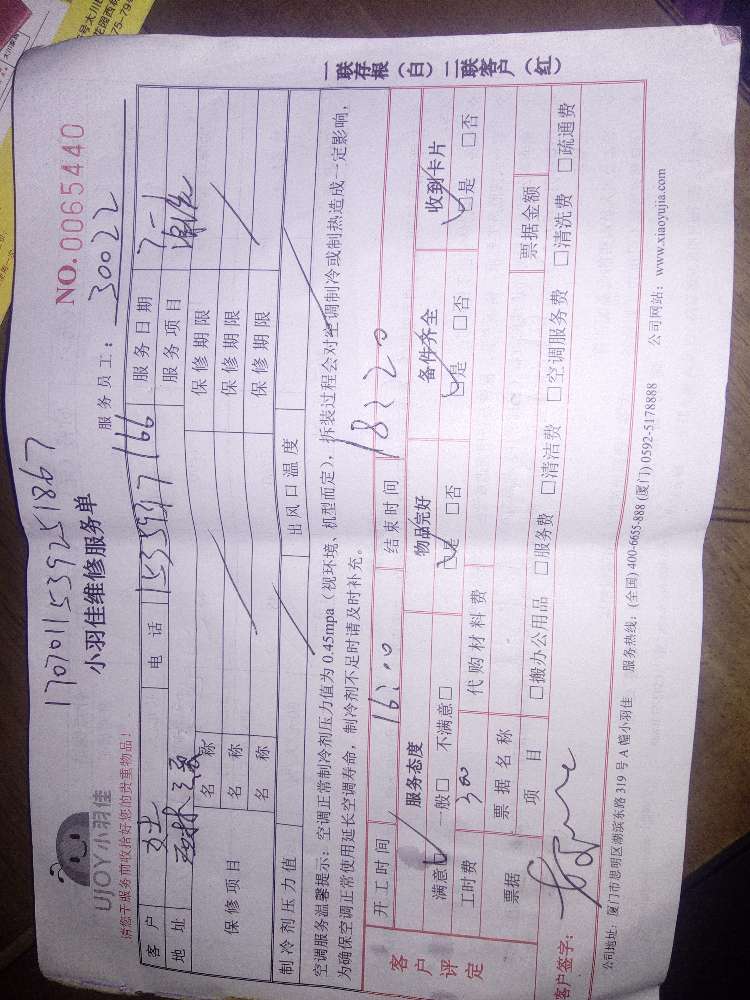 1707011539251867
NO.0065440
UJOY小羽佳
小羽佳维修服务单
请您于服务前收拾好您的贵重物品!
服务员工: 30022
客户 电话 15359317166 服务日期 7-1
地址 西林 服务项目
保修项目 名称 保修期限
名称 保修期限
名称 保修期限
制冷剂压力值 出风口温度
空调服务温馨提示:空调正常制冷剂压力值为0.45mpa(视环境、机型而定),拆装过程会对空调制冷或制热造成一定影响,
为确保空调正常使用延长空调寿命,制冷剂不足时请及时补充。
开工时间 16:00 结束时间 18:20
客户评定 服务态度 物品完好 备件齐全 收到卡片
满意□ 一般□ 不满意□ □是 □否 □是 □否 □是 □否
工时费 300 代购材料费
票据 票据名称 票据金额
项目 □搬办公用品 □服务费 □清洁费 □空调服务费 □清洗费 □疏通费
客户签字:
公司地址:厦门市思明区湖滨东路319号A幢小羽佳 服务热线:(全国)400-6655-888(厦门)0592-5178888 公司网站:www.xiaoyujia.com
一联存根(白)二联客户(红)